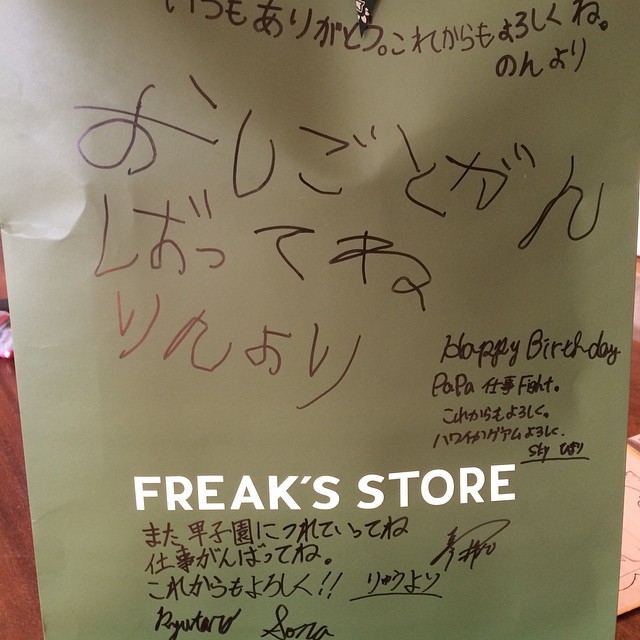 いつもありがとう。これからもよろしくね。
のんより
おしごとがん
ばってね
りんより
Happy Birthday
PaPa 仕事Fight。
これからもよろしく。
ハワイかグアムよろしく.
FREAK'S STORE
また甲子園につれていってね
仕事がんばってね。
これからもよろしく!! りゅうより
Ryutaro Sora